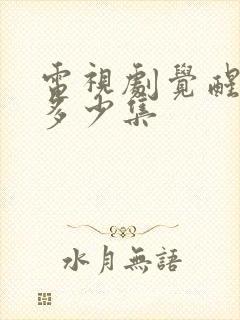 電視劇覺醒
多少集
水月無語